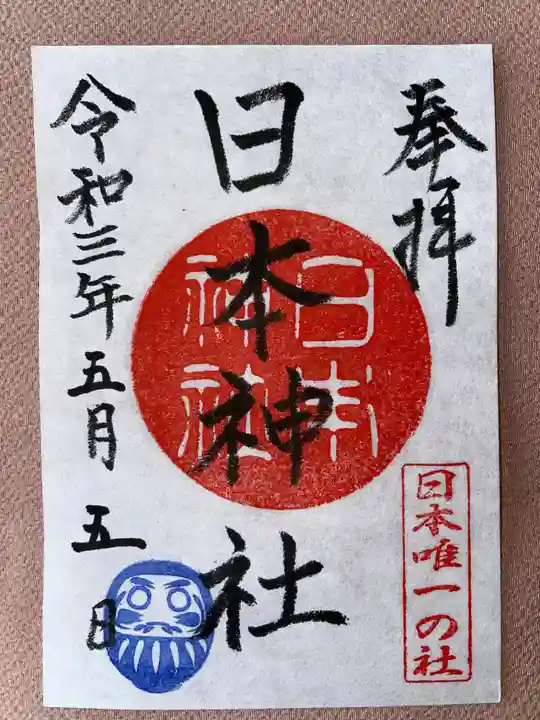 奉拝
日本唯一の社
日本神社
日本
神社
令和三年五月五日